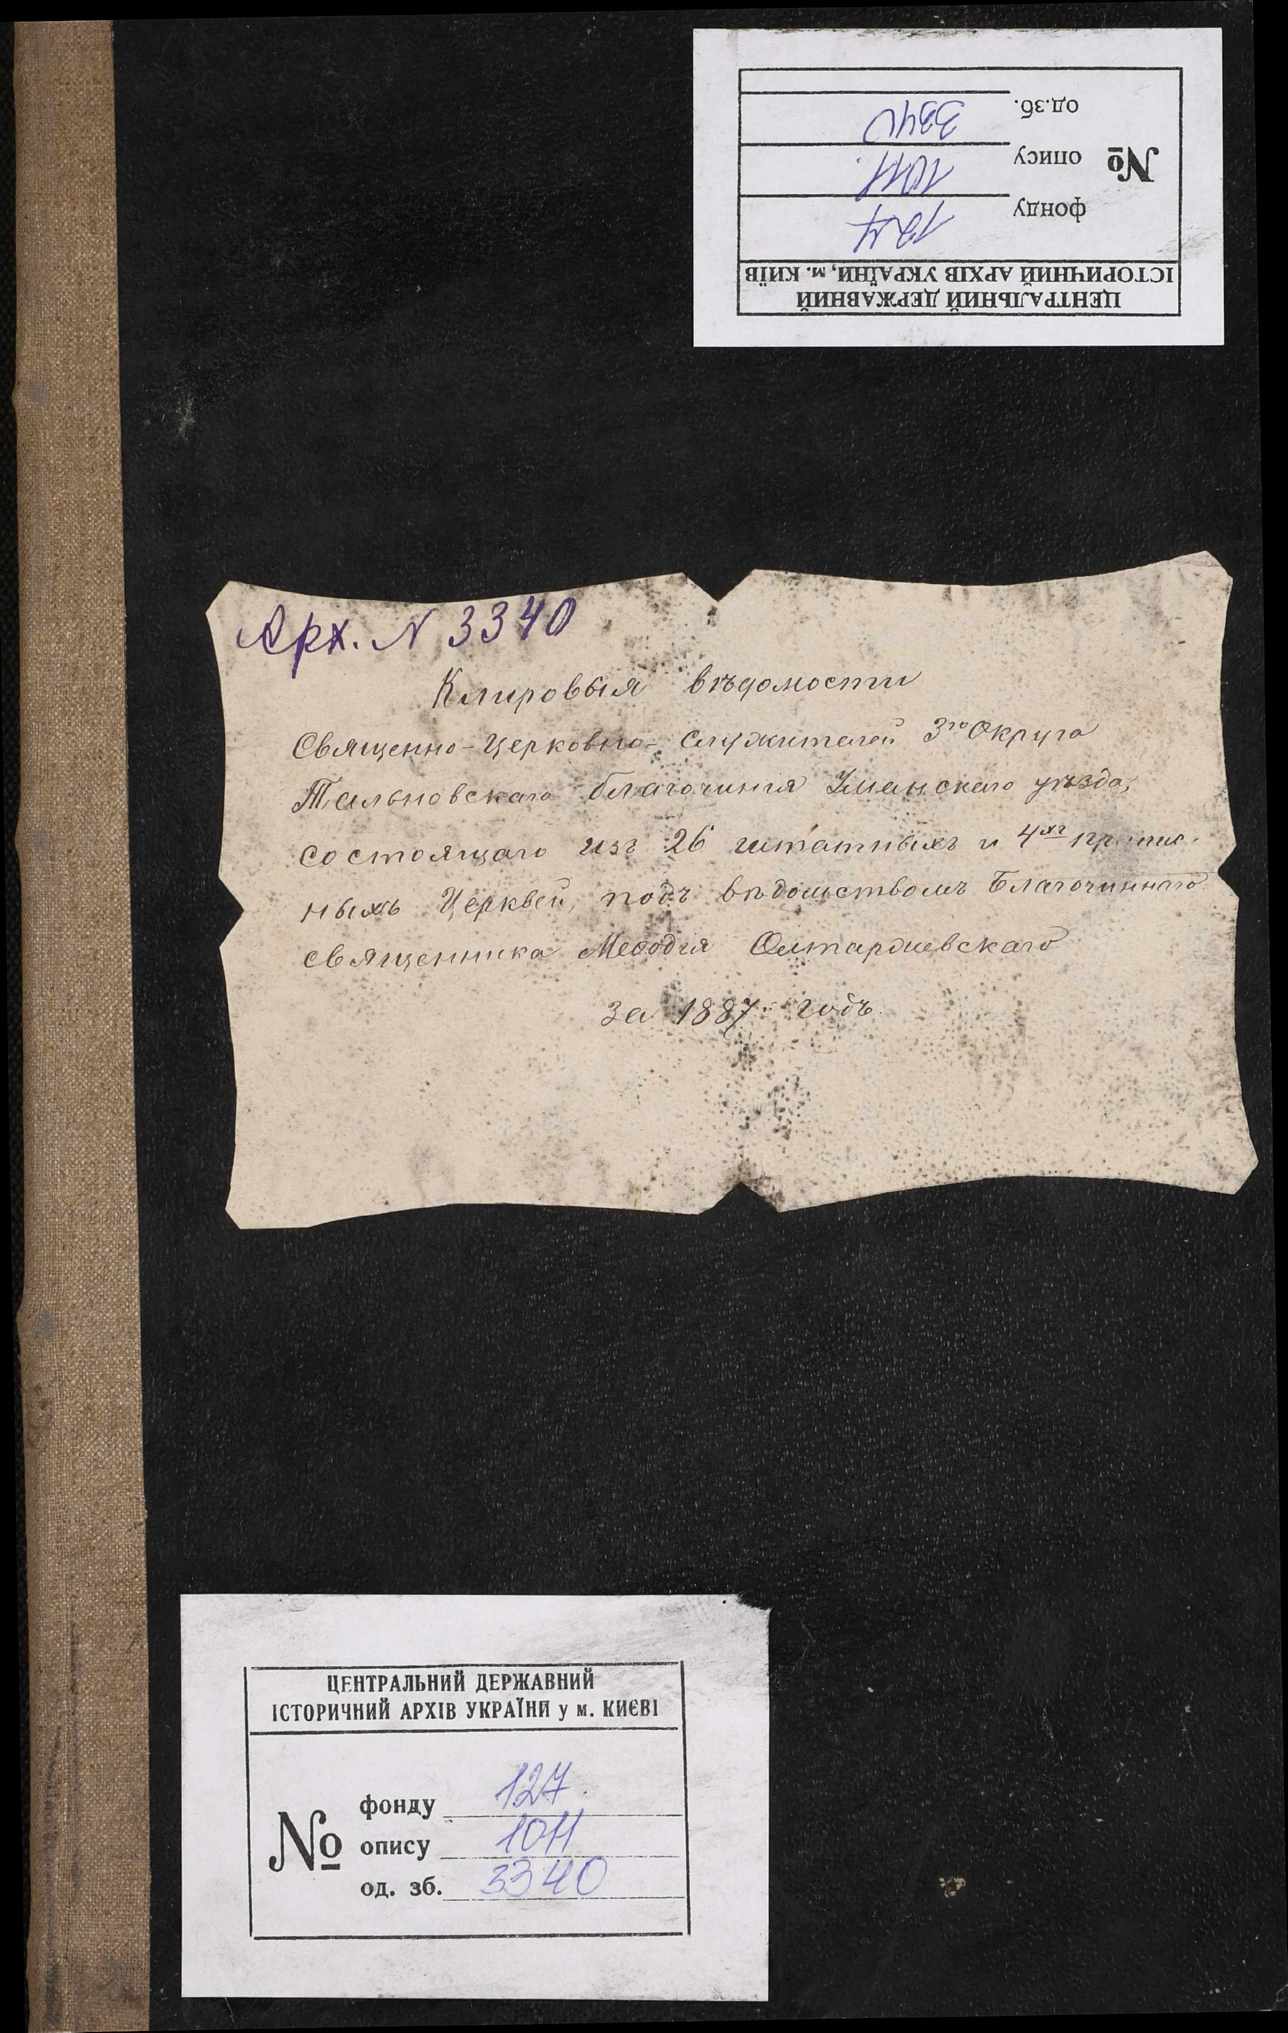 ЦЕНТРАЛЬНИЙ ДЕРЖАВНИЙ
ІСТОРИЧНИЙ АРХІВ УКРАЇНИ, м. КИЇВ
№
фонду 127
опису 1011.
од.зб. 3340
Арх. N 3340
Клировыя вѣдомости
Священно-Церковно-служителей 3го Округа
Тальновскаго благочинія Уманскаго уѣзда,
состоящаго изъ 26 штатныхъ и 4хъ припис-
ныхъ Церквей, подъ вѣдомствомъ Благочиннаго
священника Меѳодія Олтаржевскаго
за 1887 годъ
ЦЕНТРАЛЬНИЙ ДЕРЖАВНИЙ
ІСТОРИЧНИЙ АРХІВ УКРАЇНИ у м. КИЄВІ
№
фонду 127.
опису 1011
од. зб. 3340